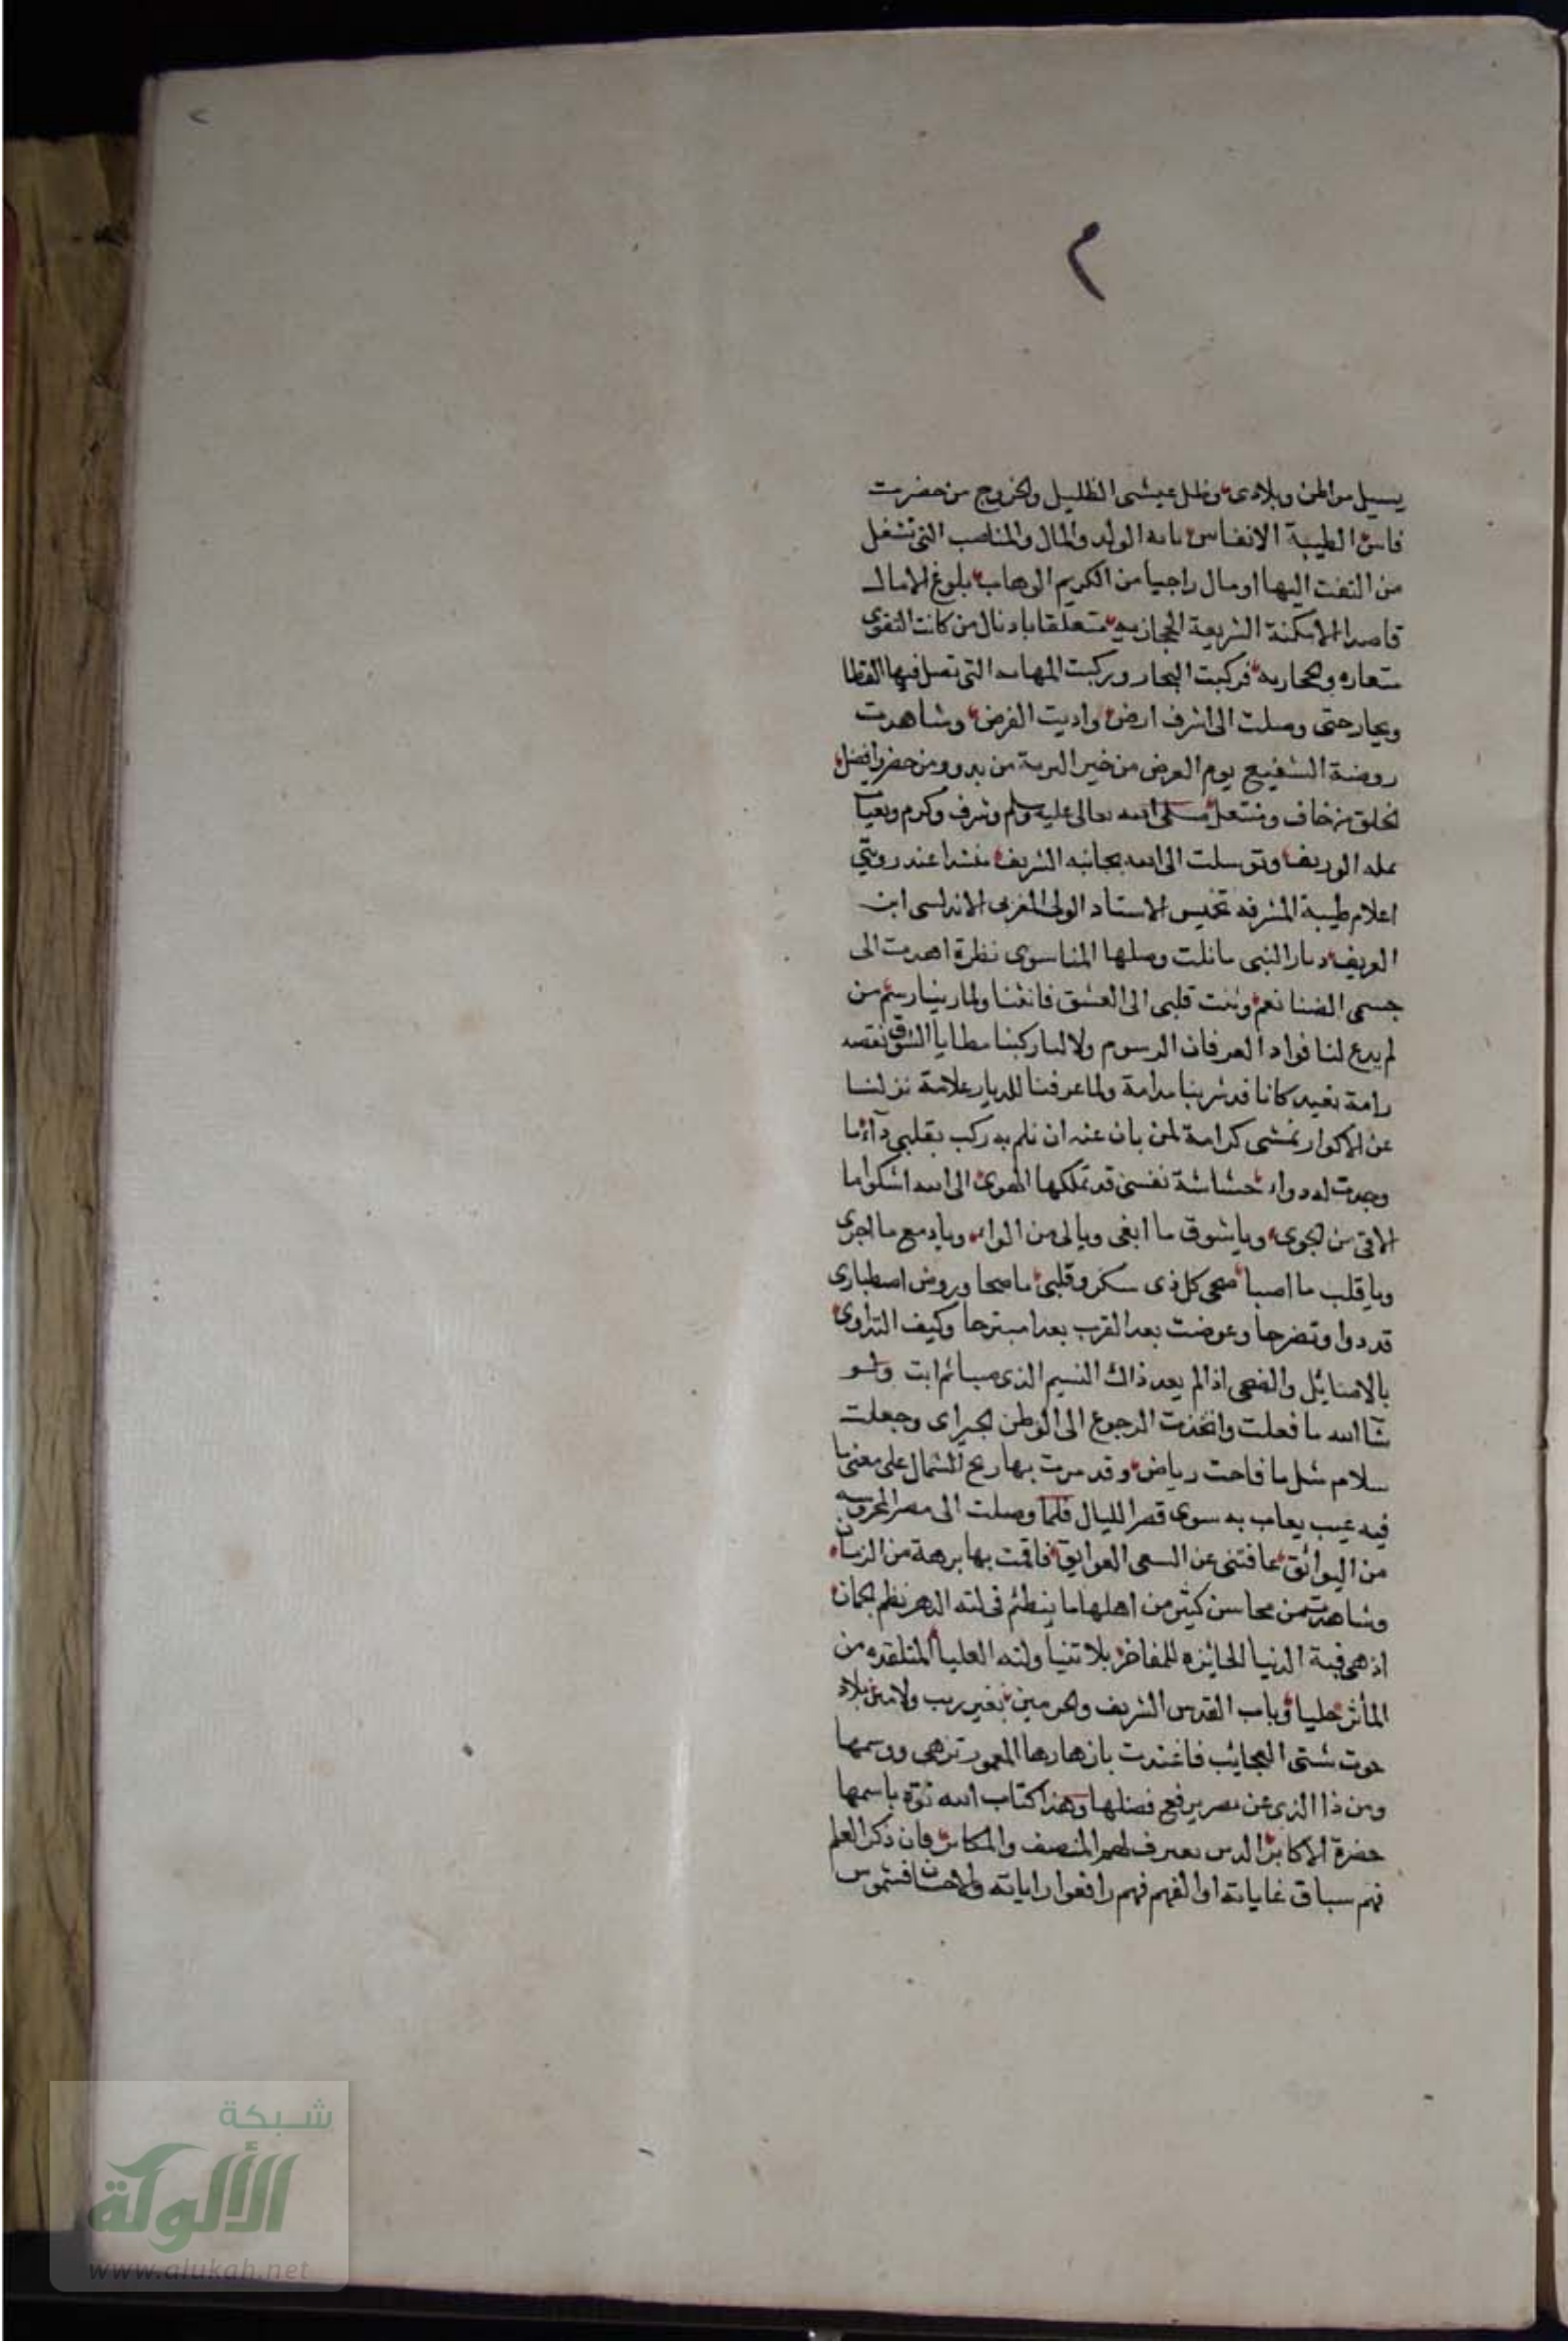 ٢
م
يسيل من المن وبلادى وظل عيشى الظليل والخروج من حضرت
فاس الطيبة الانفاس الولد والمال والمناصب التى تشغل
من التفت اليها او مال راجيا من الكريم الوهاب بلوغ الامال
قاصدا الامكنة الشريعة الحجازيه متعلقا باذيال من كانت التقوى
شعاره فركبت البحار وركبت المهامه التى تضل فيها القطا
ويحار حتى وصلت الى اشرف ارض واديت الفرض وشاهدت
روضة الشفيع يوم العرض من خير البرية من بدو ومن حضر وافضل
الخلق من خاف ومنتعل صلى الله تعالى عليه وسلم وشرف وكرم
الوريف وتوسلت الى الله بجانبه الشريف منشدا عند رويتي
اعلام طيبة المشرفه تخميس الاستاد الولى المغربى الاندلسى ابن
العريف ديار النبى مانلت وصلها المنا سوى نظرة اهدت الى
جسمى الضنا نعم وثنت قلبى الى العشق فانثنا ولما رينا رسم من
لم يدع لنا فوادا لعرفان الرسوم ولا لبا ركبنا مطايا الشوق نقصد
رامة نميد كانا قد شربنا مدامة ولما عرفنا للديار علامة نزلنا
عن الاكوار نمشى كرامة لمن بان عنه ان نلم به ركب بقلبى داء ما
وجدت له دواء حشاشة نفسى قد تملكها الهوى الى الله اشكوا ما
الاقى من الجوى ويا شوق ما ابغى ويا لى من النوا ويا دمع ما اجرى
ويا قلب ما اصبا صحى كل ذى سكر وقلبى ما صحا وروض اصطبارى
قد دوا وتضرحا وعوضت بعد القرب بعدا مبترحا وكيف التداوى
بالاصايل والضحى اذا لم يعد ذاك النسيم الذى صبا ثم ابت ولو
شا الله ما فعلت واتخذت الرجوع الى الوطن وجعلت
سلام مثل ما فاحت رياض وقد مرت بها ريح الشمال على مغنى ما
فيه عيب يعاب به سوى قصر الليال فلما وصلت الى مصر المحروسه
من البوائق عاقتنى عن السعى العوايق فاقمت بها برهة من الزمان
وشاهدت من محاسن كثير من اهلها ما ينظم فى لته الدهر نظم الجمان
اذ هى قبة الدنيا الحائزه للمفاخر بلا تنيا ولته العليا المتلقده من
المأثر حليا وباب القدس الشريف والحرمين بغير ريب ولا مين بلاد
حوت شتى العجايب فاغتدت بازهارها المعمور تزهى ورسمها
ومن ذا الذى عن مصر يرفع فضلها وهذا كتاب الله نوه باسمها
حضرة الاكابر الدين يعترف لهم المنصف والمكابر فان ذكر العلم
فهم سباق غاياته او الفهم فهم رافعوا راياته والاحسان فشموس
شبكة
الألوكة
www.alukah.net